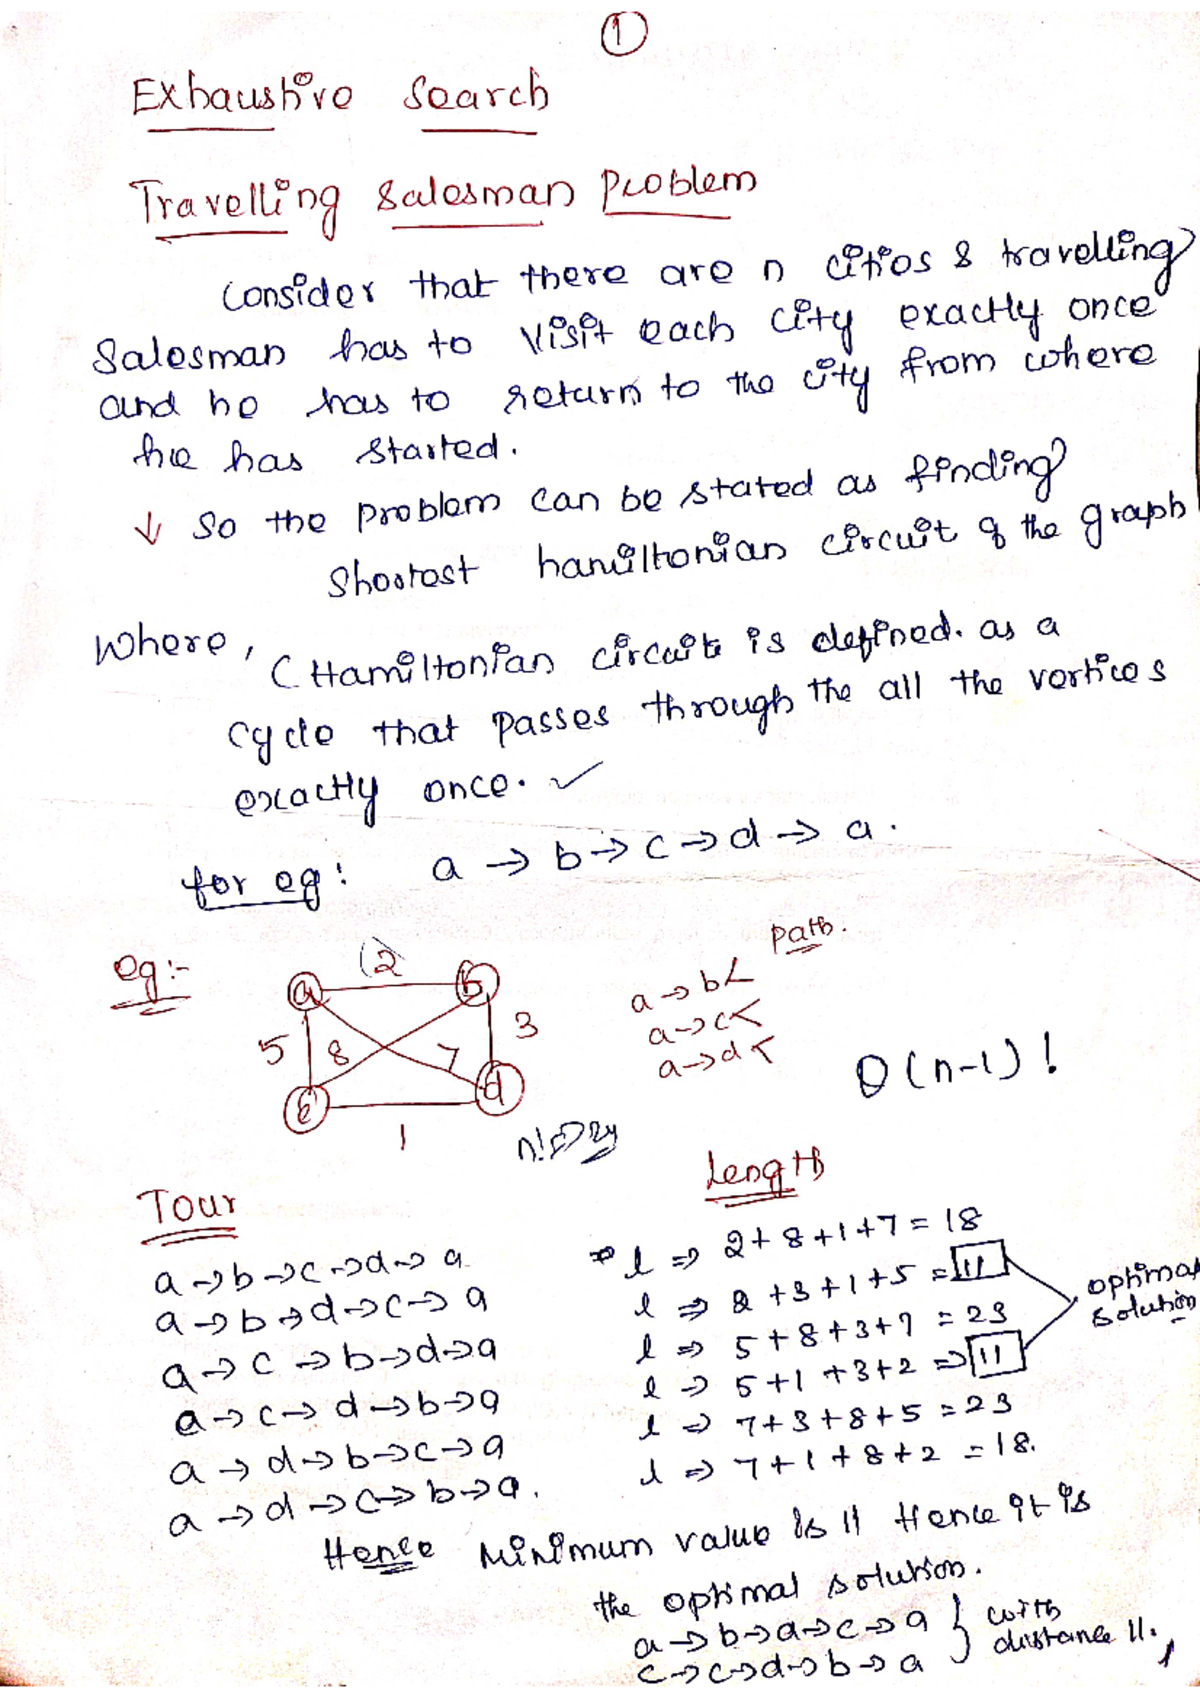 1
Exhaustive Search
Travelling Salesman Problem
Consider that there are n cities & travelling
Salesman has to visit each city exactly once
and he has to return to the city from where
he has started.
↓ So the problem can be stated as finding
Shortest hamiltonian circuit of the graph
Where,
(Hamiltonian circuits is defined. as a
cycle that passes through the all the vertices
exactly once. ✓
for eg: a → b → c → d → a.
eg:-
(2)
a b
5 8 7 3
c d
1
Path.
a → b <
a → c <
a → d <
θ(n-1)!
Tour
Length
a → b → c → d → a l ⇒ 2+8+1+7 = 18
a → b → d → c → a l ⇒ 2+3+1+5 = 11
a → c → b → d → a l ⇒ 5+8+3+7 = 23
a → c → d → b → a l → 5+1+3+2 ⇒ 11
a → d → b → c → a l ⇒ 7+3+8+5 = 23
a → d → c → b → a. l ⇒ 7+1+8+2 = 18.
optimal
solution
Hence Minimum value is 11 Hence it is
the optimal solution.
a → b → d → c → a } with
c → c → d → b → a distance 11.